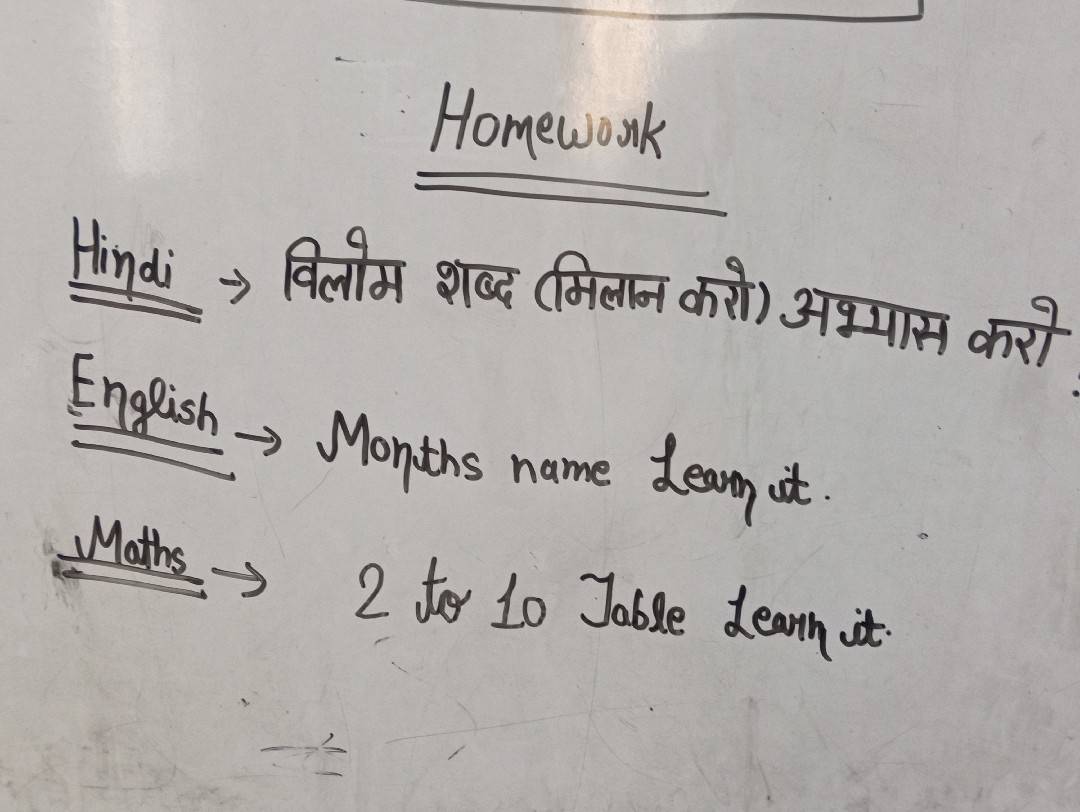 Homework
Hindi → विलोम शब्द (मिलान करो) अभ्यास करो.
English → Months name Learn it.
Maths → 2 to 10 Table Learn it.